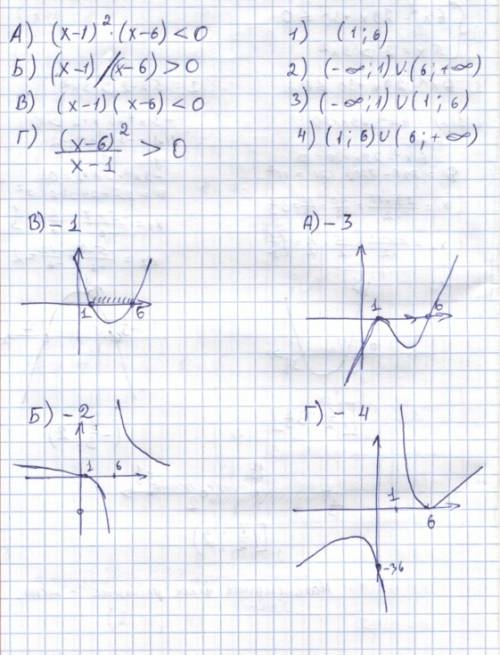 А) (x-1)² · (x-6) < 0 1) (1; 6)
Б) (x-1) / (x-6) > 0 2) (-∞; 1) ∪ (6; +∞)
В) (x-1)(x-6) < 0 3) (-∞; 1) ∪ (1; 6)
Г) (x-6)² / x-1 > 0 4) (1; 6) ∪ (6; +∞)
В) - 1 А) - 3
1 6 1 6
Б) - 2 Г) - 4
1 6 1 6
-36